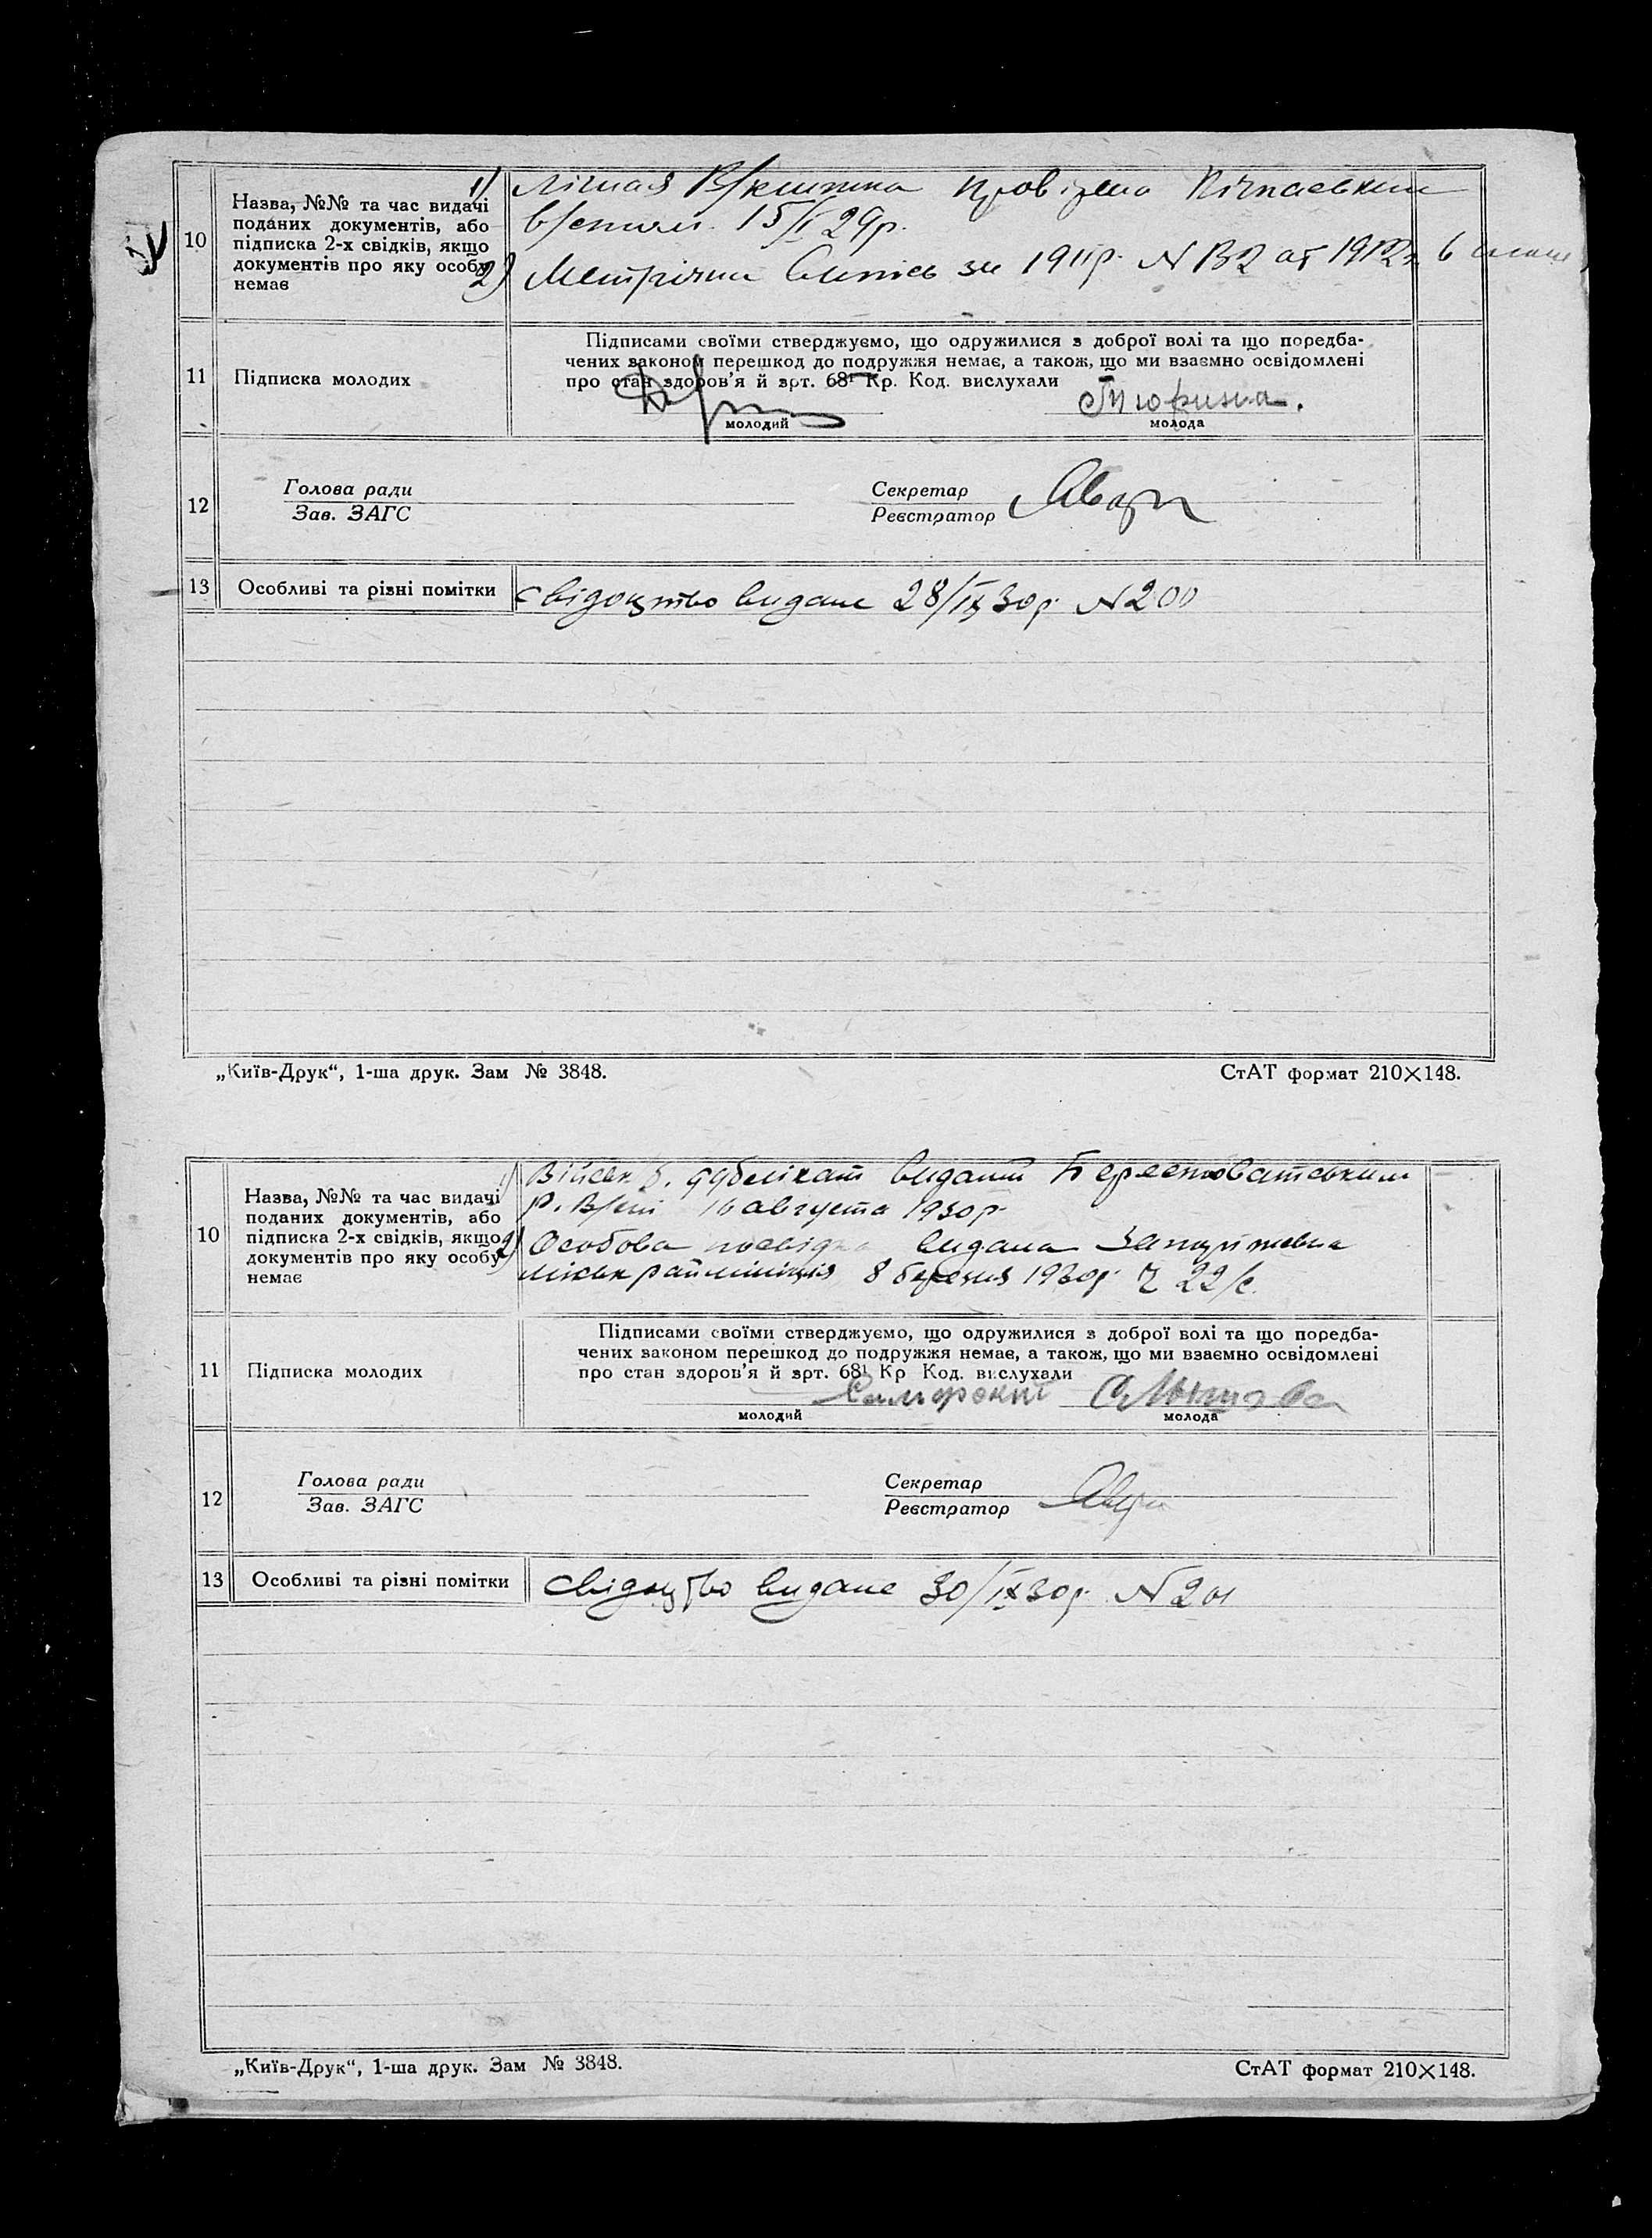 10
Назва, №№ та час видачі
поданих документів, або
підписка 2-х свідків, якщо
документів про яку особу
немає
1) В/книжка
15/ 29р.
2) за 1911р. N
11
Підписка молодих
Підписами своїми стверджуємо, що одружилися з доброї волі та що поредба-
чених законом перешкод до подружжя немає, а також, що ми взаємно освідомлені
про стан здоров'я й арт. 68¹ Кр. Код. вислухали
Тюрина.
молодий молода
12
Голова ради
Зав. ЗАГС
Секретар
Реєстратор
13
Особливі та різні помітки
свідоцтво видане 28/ІХ 30р. N 200
„Київ-Друк“, 1-ша друк. Зам № 3848. СтАТ формат 210×148.
10
Назва, №№ та час видачі
поданих документів, або
підписка 2-х свідків, якщо
документів про яку особу
немає
1) Військ б. дублікат виданий Берестоватським
Р. 16 августа 1930р.
2) Особова посвідка видана
8 березня 1930р. 22/с.
11
Підписка молодих
Підписами своїми стверджуємо, що одружилися з доброї волі та що поредба-
чених законом перешкод до подружжя немає, а також, що ми взаємно освідомлені
про стан здоров'я й арт. 68¹ Кр Код. вислухали
молодий молода
12
Голова ради
Зав. ЗАГС
Секретар
Реєстратор
13
Особливі та різні помітки
свідоцтво видане 30/ІХ 30р. N 201
„Київ-Друк“, 1-ша друк. Зам № 3848. СтАТ формат 210×148.